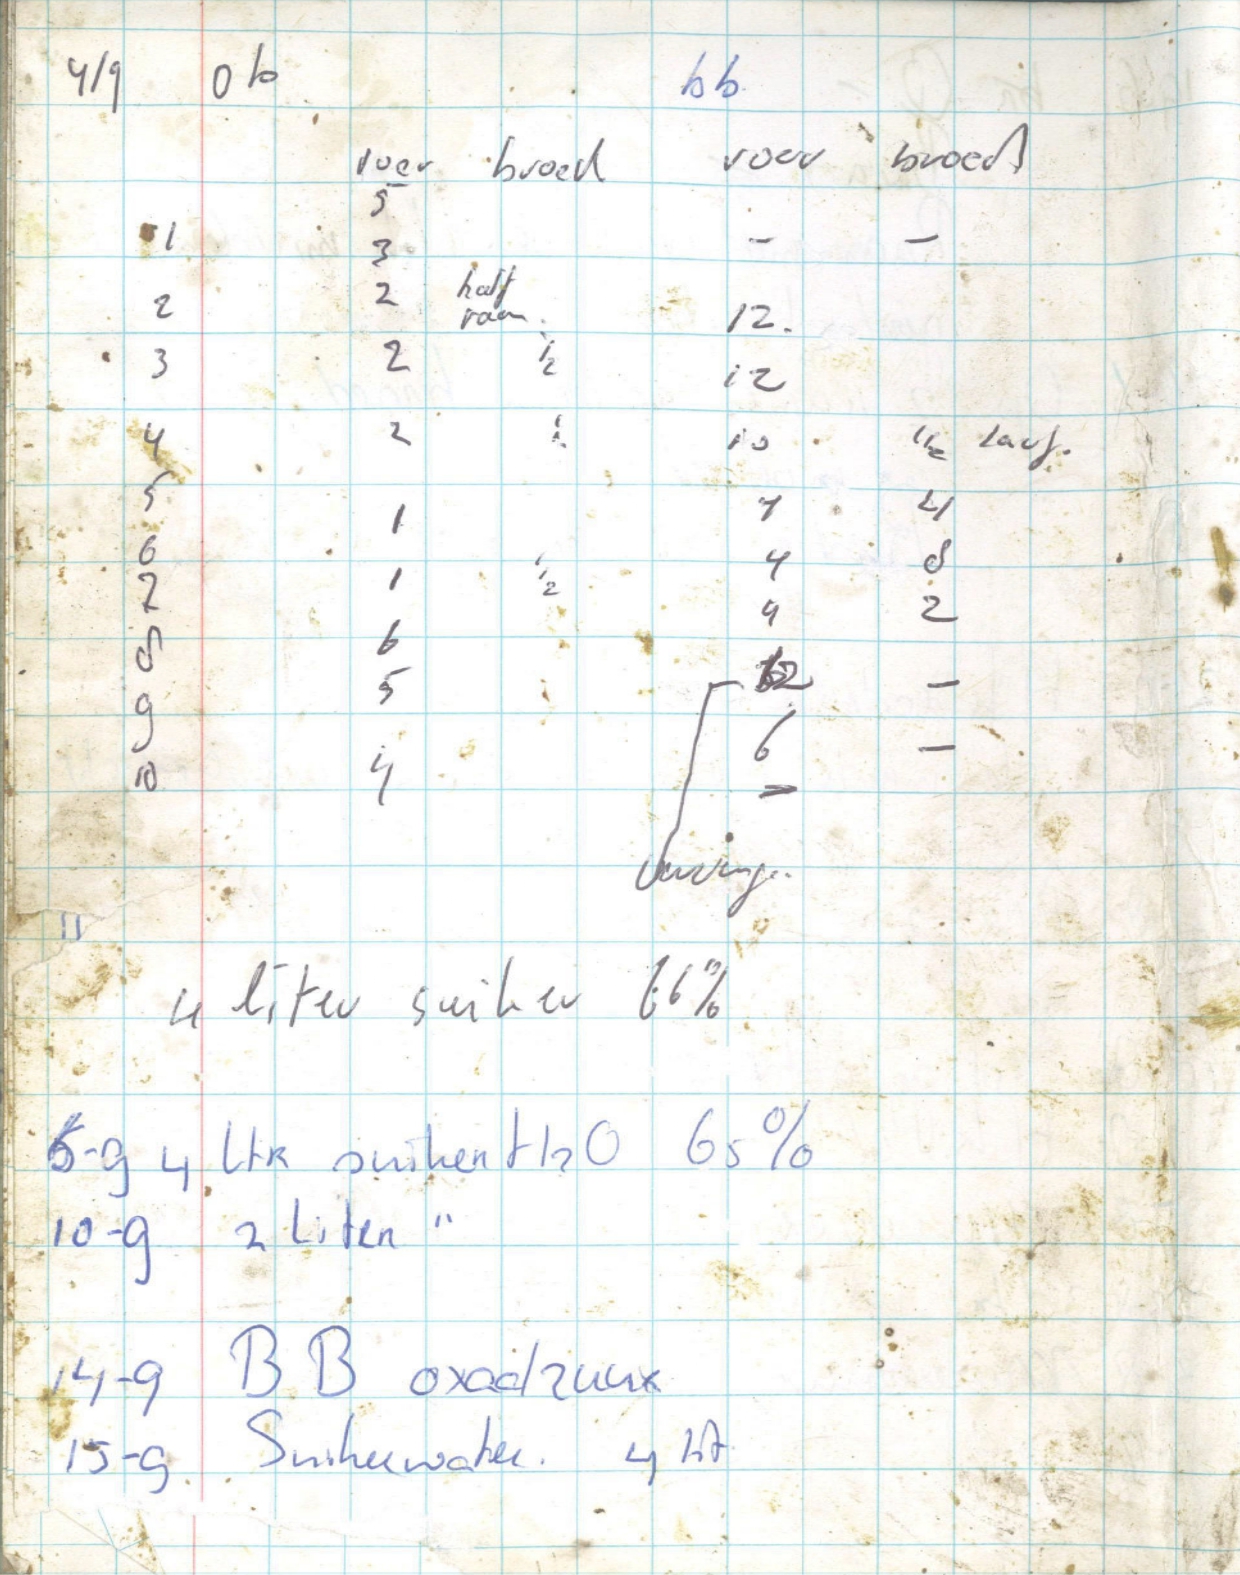 4/9 Ob bb
voer broed voer broed
5
1 3 - -
2 2 half raam 12.
3 2 1/2 12
4 2 10 1/2
5
1 4 4
6 4 8
7 1 1/2 4 2
8 6 12 -
9 5 6 -
10 4 -
11
4 liter suiker 66%
5-9 4 ltr suiker H2O 65%
10-9 2 liter "
14-9 BB oxaalzuur
15-9 Suikerwater. 4 lit